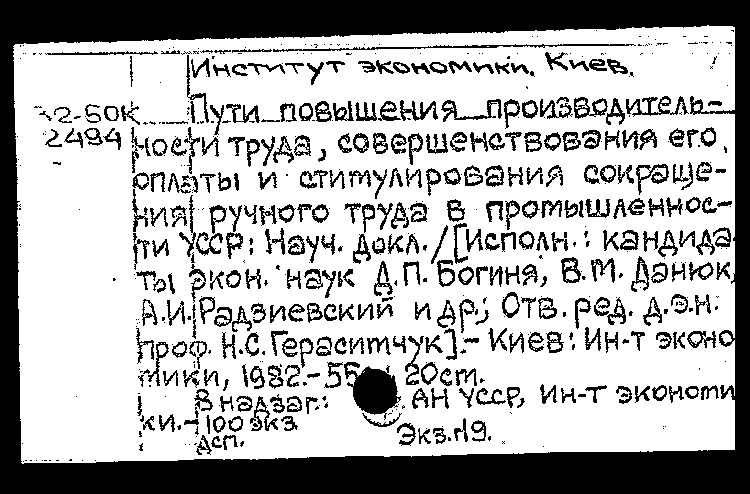 Институт экономики. Киев.
Пути повышения производитель-
2-60К
2494 ности труда, совершенствования его
оплаты и стимулирования сокраще-
ния ручного труда в промышленнос-
ти УССР: Науч. докл./[Исполн.: кандида-
ты экон. наук Д.П. Богиня, В.М. Данюк,
А.И. Радзиевский и др.; Отв. ред. д.э.н.
проф. Н.С. Герасимчук].- Киев: Ин-т эконо
мики, 1982.- 55 20см.
В надзаг.: АН УССР, Ин-т экономи
ки.- 100 экз
дсп. Экз. 19.